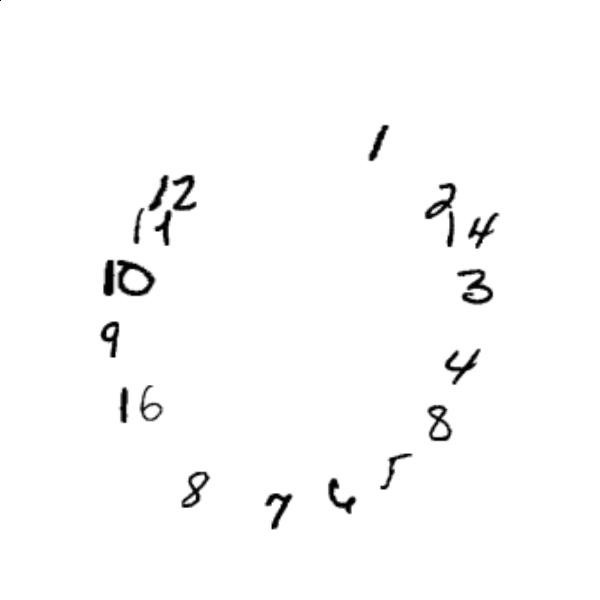 1
2
14
3
4
8
5
6
7
8
16
9
10
11
12